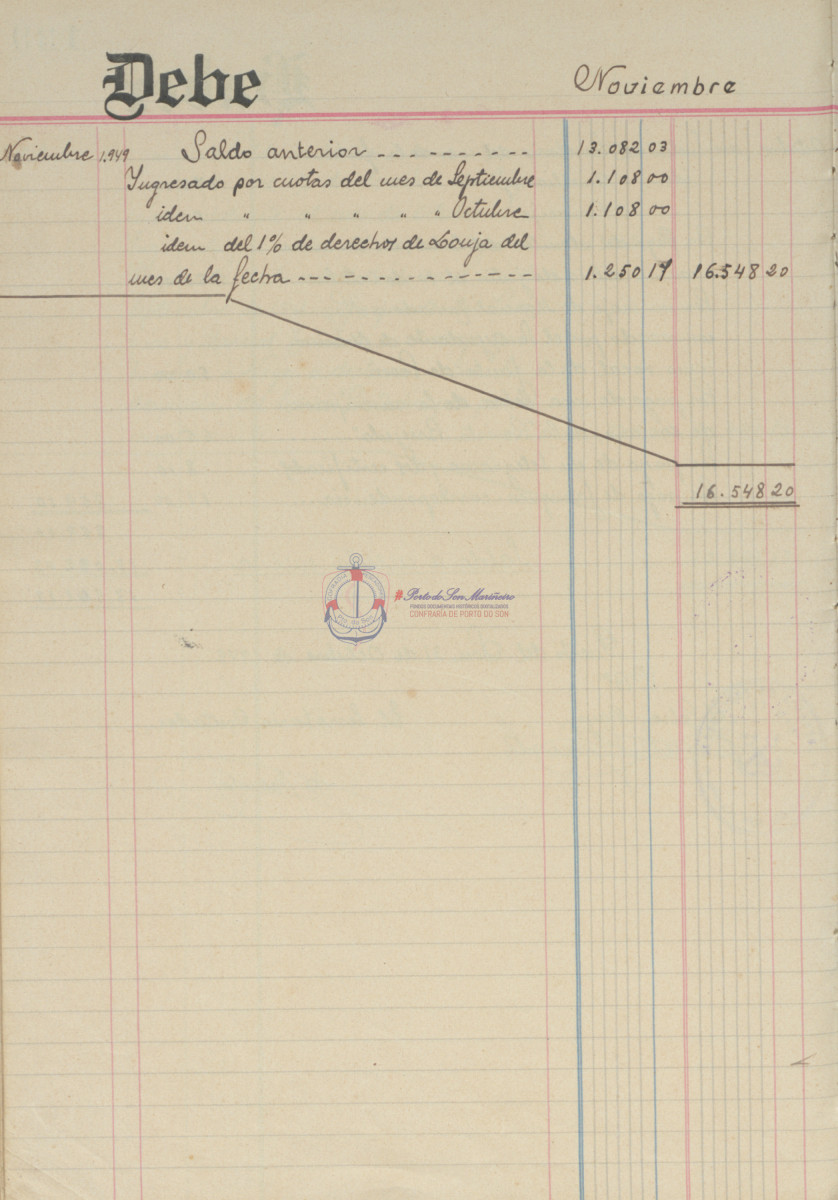 Debe Noviembre
Noviembre 1.949 Saldo anterior ---------- 13.082 03
Ingresado por cuotas del mes de Septiembre 1.108 00
idem " " " " " Octubre 1.108 00
idem del 1% de derechos de Lonja del
mes de la fecha --------------- 1.250 17 16.548 20
16.548 20
#Porto do Son Mariñeiro
FONDOS DOCUMENTAIS HISTÓRICOS DIXITALIZADOS
CONFRARÍA DE PORTO DO SON